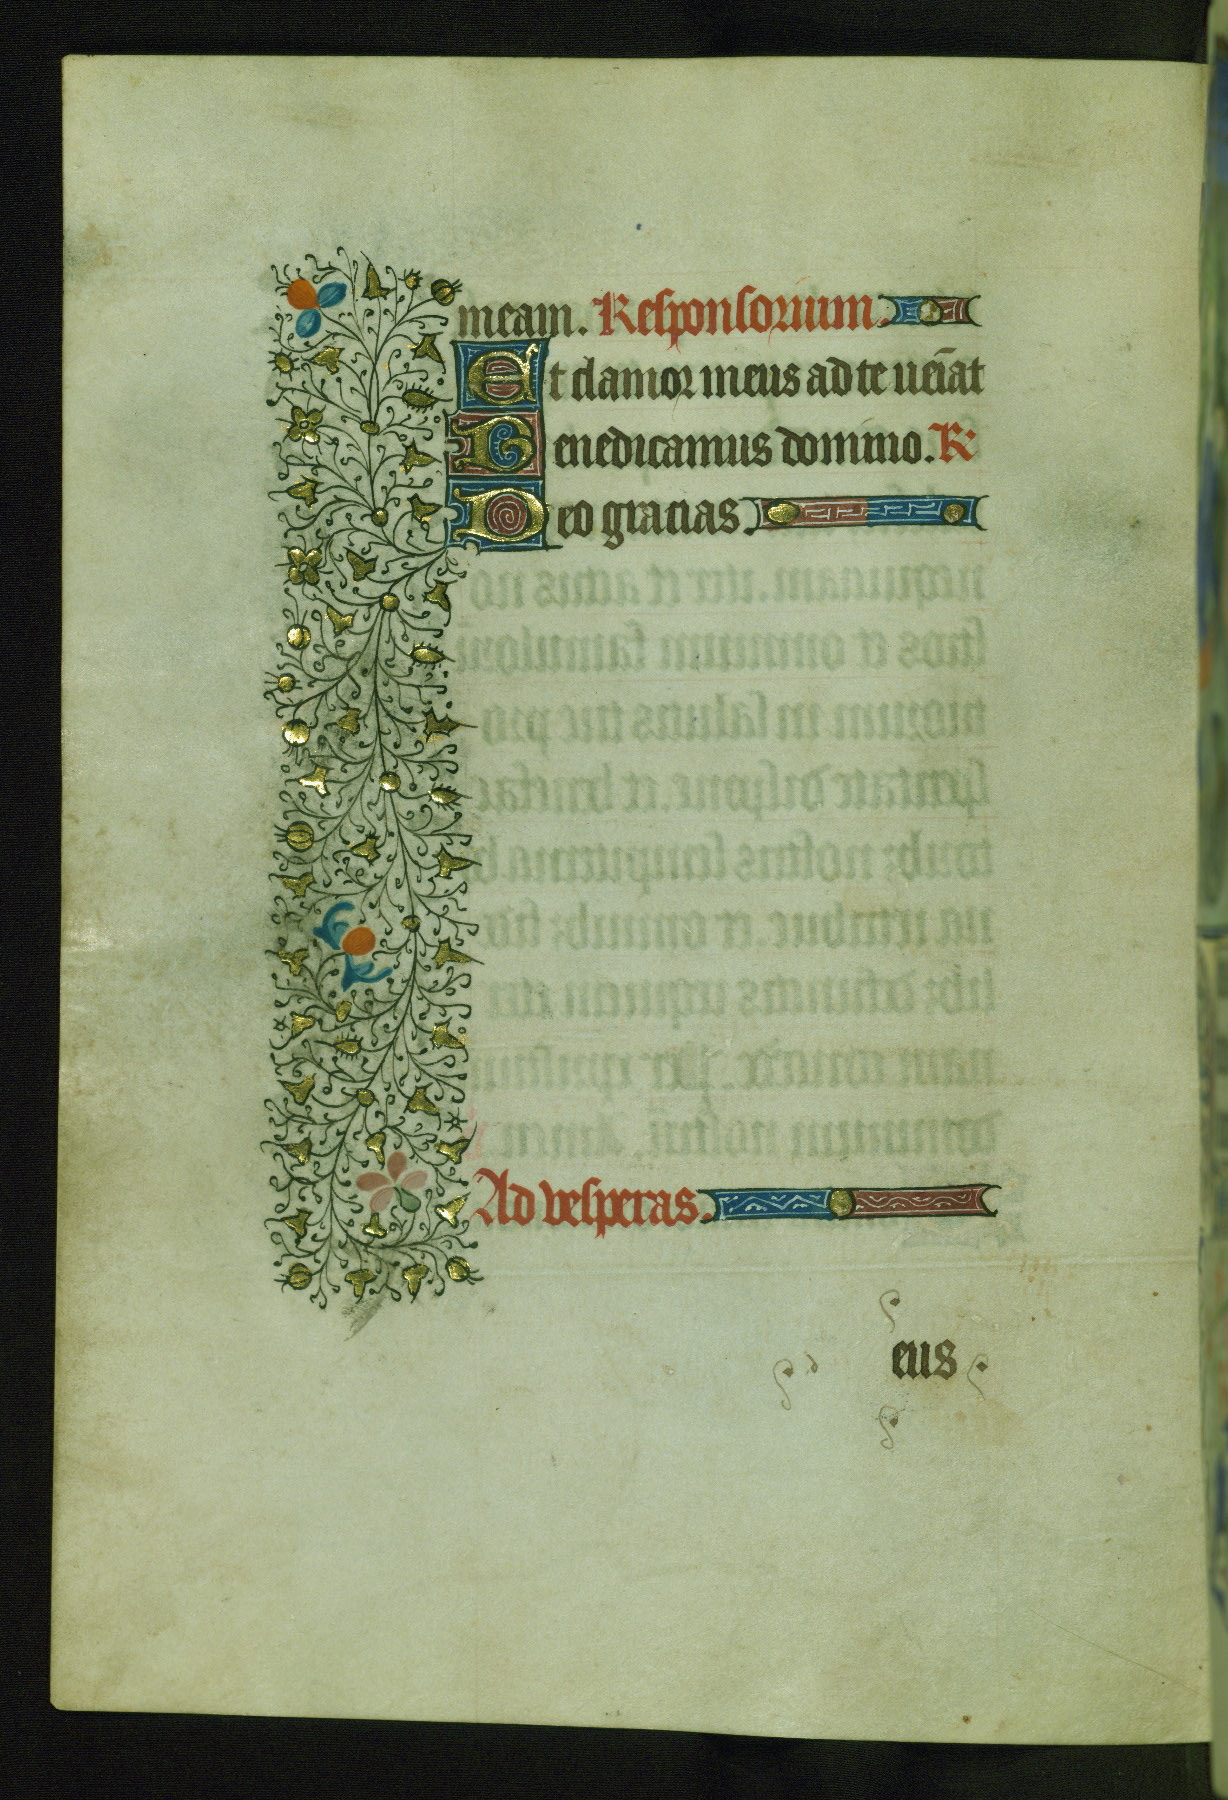 meam. Responsorium.
Et clamor meus ad te ueīat
Benedicamus domino. R
Deo gracias
Ad vesperas.
eus